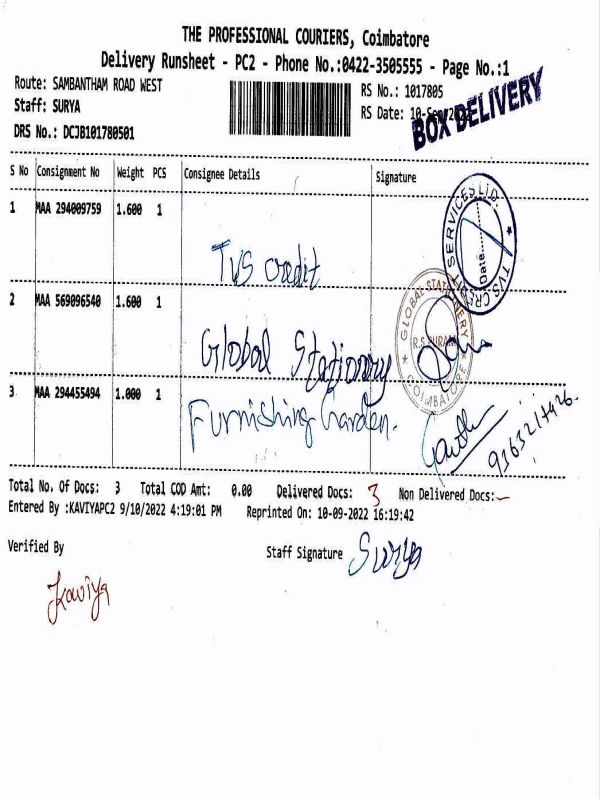 THE PROFESSIONAL COURIERS, Coimbatore
Delivery Runsheet - PC2 - Phone No.:0422-3505555 - Page No.:1
Route: SAMBANTHAM ROAD WEST
RS No.: 1017805
Staff: SURYA
RS Date: 10-Sep/2022
BOX DELIVERY
DRS No.: DCJB101780501
S No Consignment No Weight PCS Consignee Details Signature
1 MAA 294009759 1.600 1
TVS Credit
TVS CREDIT SERVICES LTD.
Date
2 MAA 569096540 1.600 1
Global Stationary
GLOBAL STATIONERY
R.S.PURAM
COIMBATORE
3 MAA 294455494 1.000 1
Furnishing Garden.
9363217426.
Total No. Of Docs: 3 Total COD Amt: 0.00 Delivered Docs: 3 Non Delivered Docs:-
Entered By :KAVIYAPC2 9/10/2022 4:19:01 PM Reprinted On: 10-09-2022 16:19:42
Verified By Staff Signature Surya
Kaviya